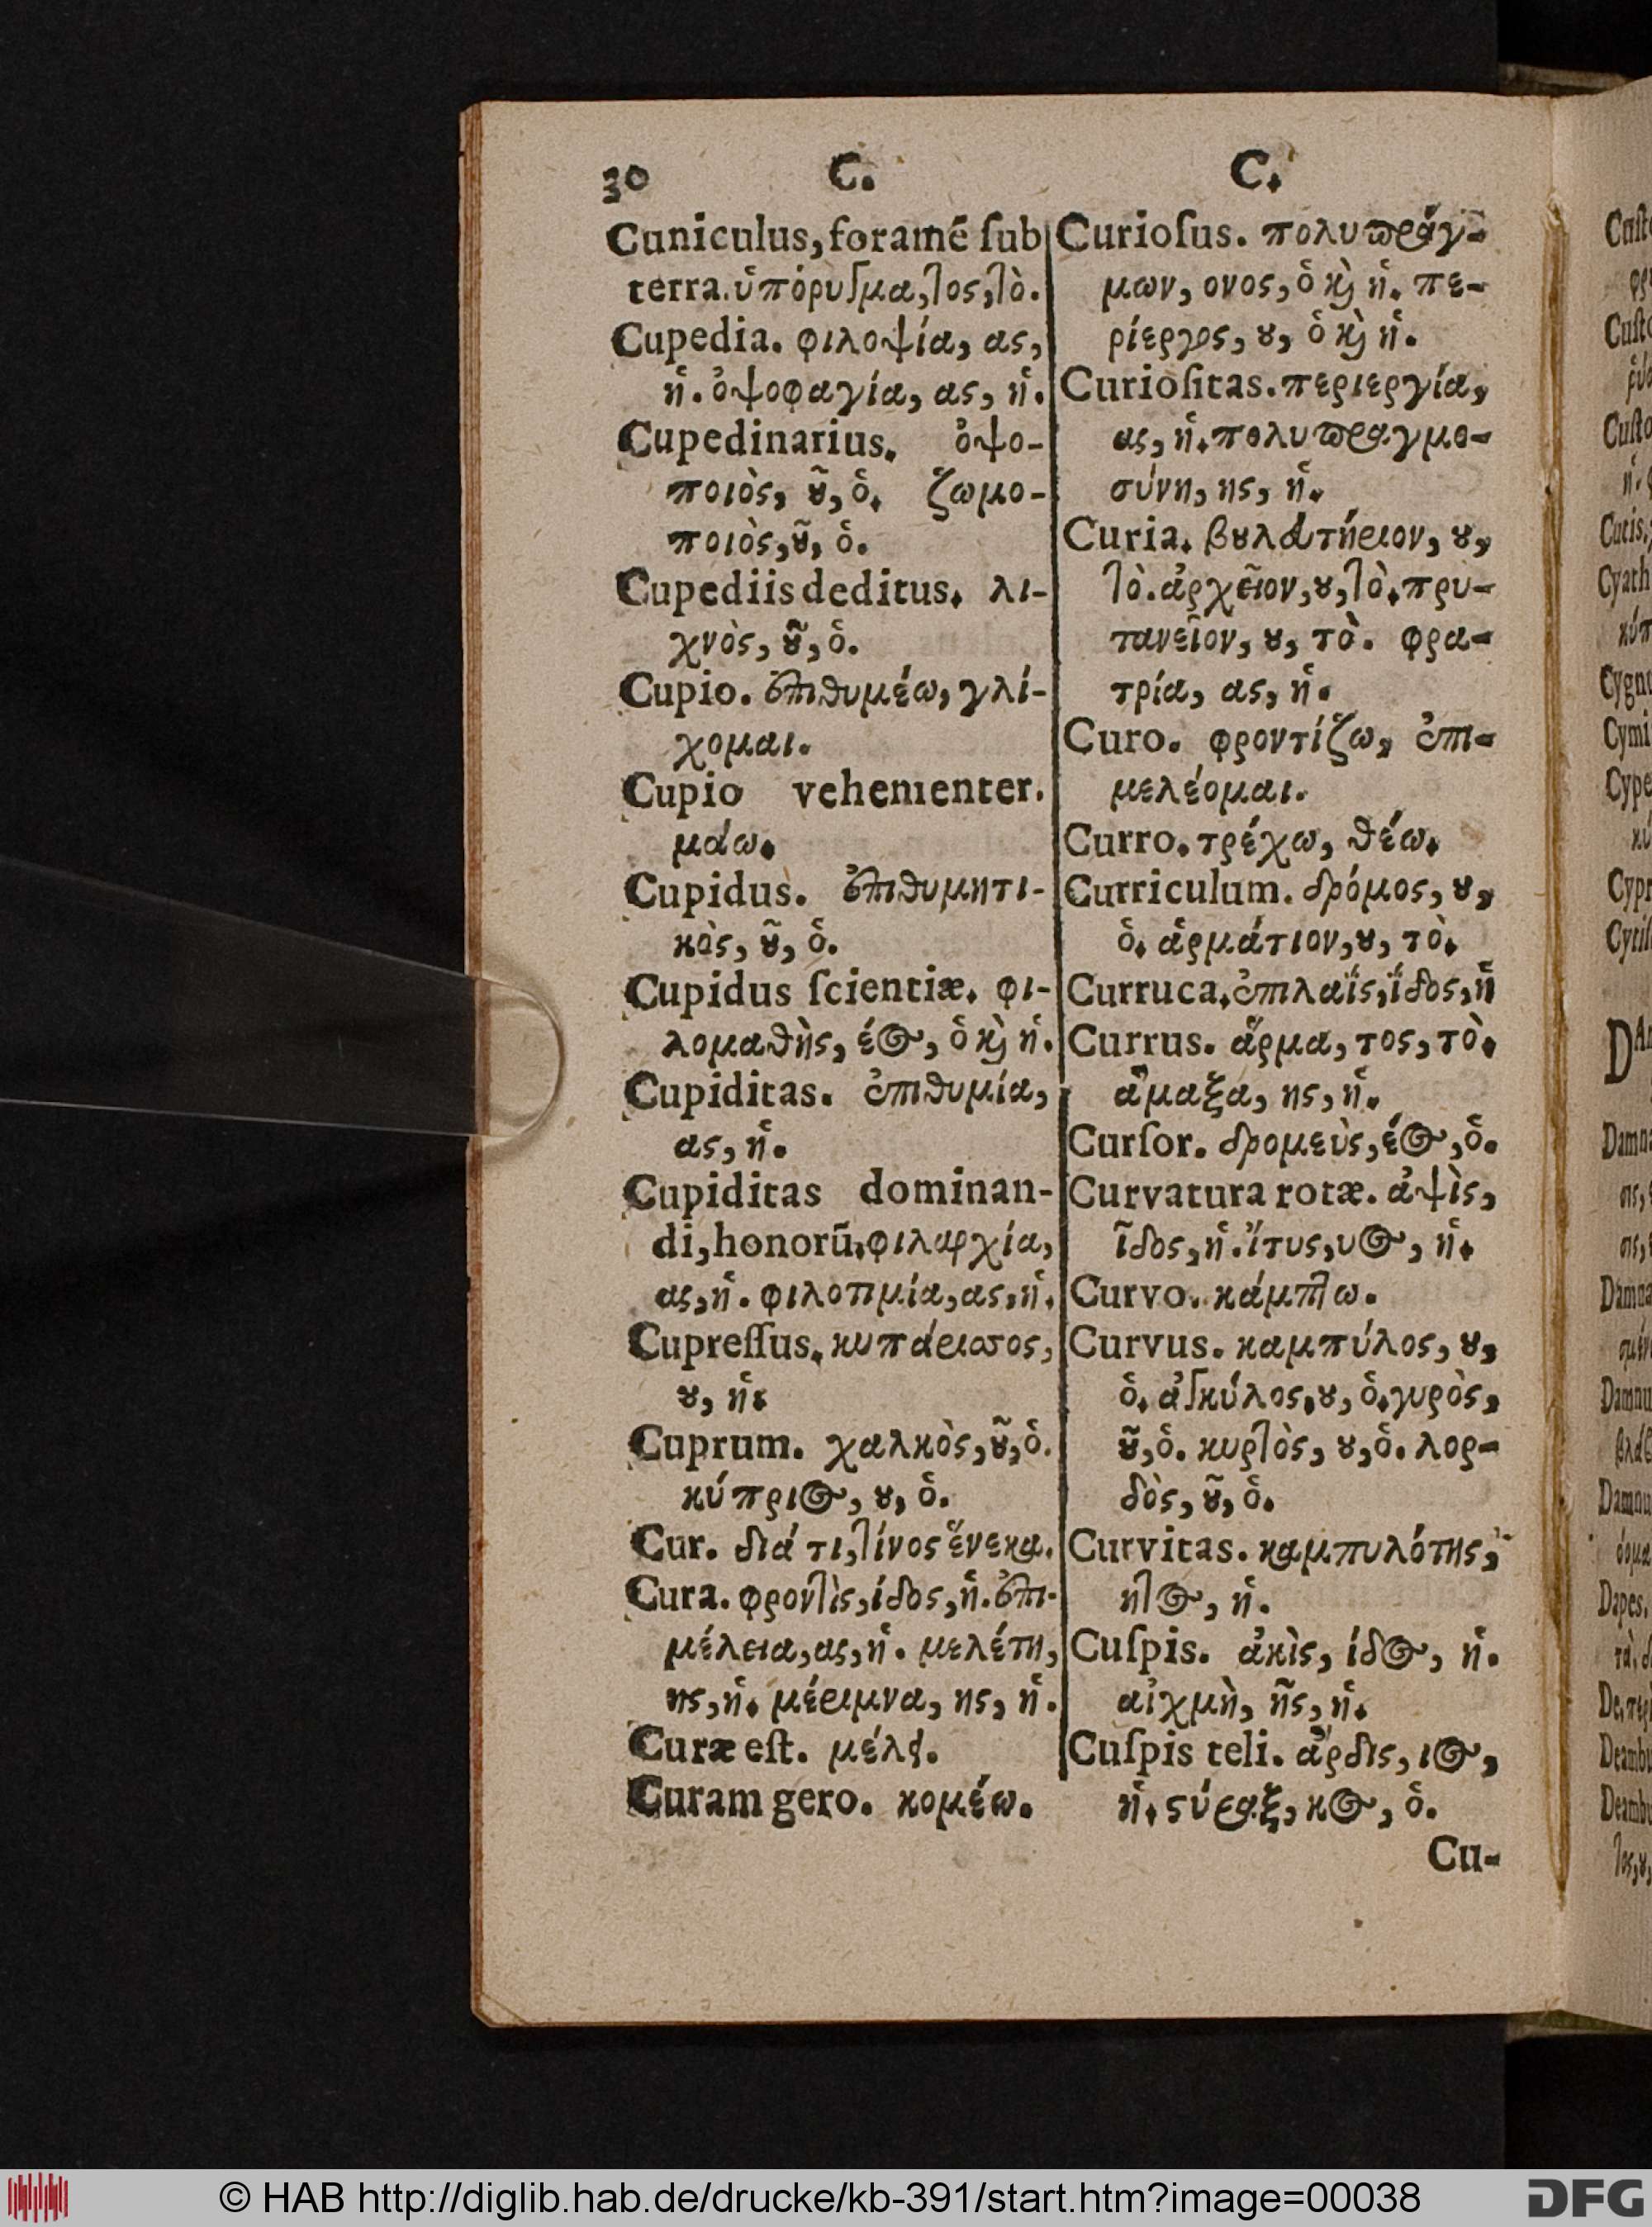 30 C. C.
Cuniculus, foramē ſub
terra. ὑπόρυſμα, τος, τὸ.
Cupedia. φιλοψία, ας,
ἡ. ὀψοφαγία, ας, ἡ.
Cupedinarius. ὀψο-
ποιὸς, ȣ͂, ὁ. ζωμο-
ποιὸς, ȣ͂, ὁ.
Cupediis deditus. λι-
χνὸς, ȣ͂, ὁ.
Cupio. ἐπιθυμέω, γλί-
χομαι.
Cupio vehementer.
μάω.
Cupidus. ἐπιθυμητι-
κὸς, ȣ͂, ὁ.
Cupidus ſcientiæ. φι-
λομαθὴς, έος, ὁ ϗ̀ ἡ.
Cupiditas. ἐπιθυμία,
ας, ἡ.
Cupiditas dominan-
di, honorū. φιλαρχία,
ας, ἡ. φιλοτιμία, ας, ἡ.
Cupreſſus. κυπάρισσος,
ȣ, ἡ.
Cuprum. χαλκὸς, ȣ͂, ὁ.
κύπριος, ȣ, ὁ.
Cur. διά τι, τίνος ἕνεκα.
Cura. φροντὶς, ίδος, ἡ. ἐπι-
μέλεια, ας, ἡ. μελέτη,
ης, ἡ. μέριμνα, ης, ἡ.
Curæ eſt. μέλει.
Curam gero. κομέω.
Curioſus. πολυπράγ-
μων, ονος, ὁ ϗ̀ ἡ. πε-
ρίεργος, ȣ, ὁ ϗ̀ ἡ.
Curioſitas. περιεργία,
ας, ἡ. πολυπραγμο-
σύνη, ης, ἡ.
Curia. βȣλευτήριον, ȣ,
τὸ. ἀρχεῖον, ȣ, τὸ. πρυ-
τανεῖον, ȣ, τὸ. φρα-
τρία, ας, ἡ.
Curo. φροντίζω, ἐπι-
μελέομαι.
Curro. τρέχω, θέω.
Curriculum. δρόμος, ȣ,
ὁ. ἁρμάτιον, ȣ, τὸ.
Curruca. ἐπιλαῒς, ΐδος, ἡ
Currus. ἅρμα, τος, τὸ.
ἅμαξα, ης, ἡ.
Curſor. δρομεὺς, έος, ὁ.
Curvatura rotæ. ἁψὶς,
ῖδος, ἡ. ἴτυς, υος, ἡ.
Curvo. κάμπτω.
Curvus. καμπύλος, ȣ,
ὁ. ἀſκύλος, ȣ, ὁ. γυρὸς,
ȣ͂, ὁ. κυρτὸς, ȣ, ὁ. λορ-
δὸς, ȣ͂, ὁ.
Curvitas. καμπυλότης,
ητος, ἡ.
Cuſpis. ἀκὶς, ίδος, ἡ.
αἰχμὴ, ῆς, ἡ.
Cuſpis teli. ἄρδις, ιος,
ἡ. ϛύραξ, κος, ὁ.
Cu-
© HAB http://diglib.hab.de/drucke/kb-391/start.htm?image=00038
DFG